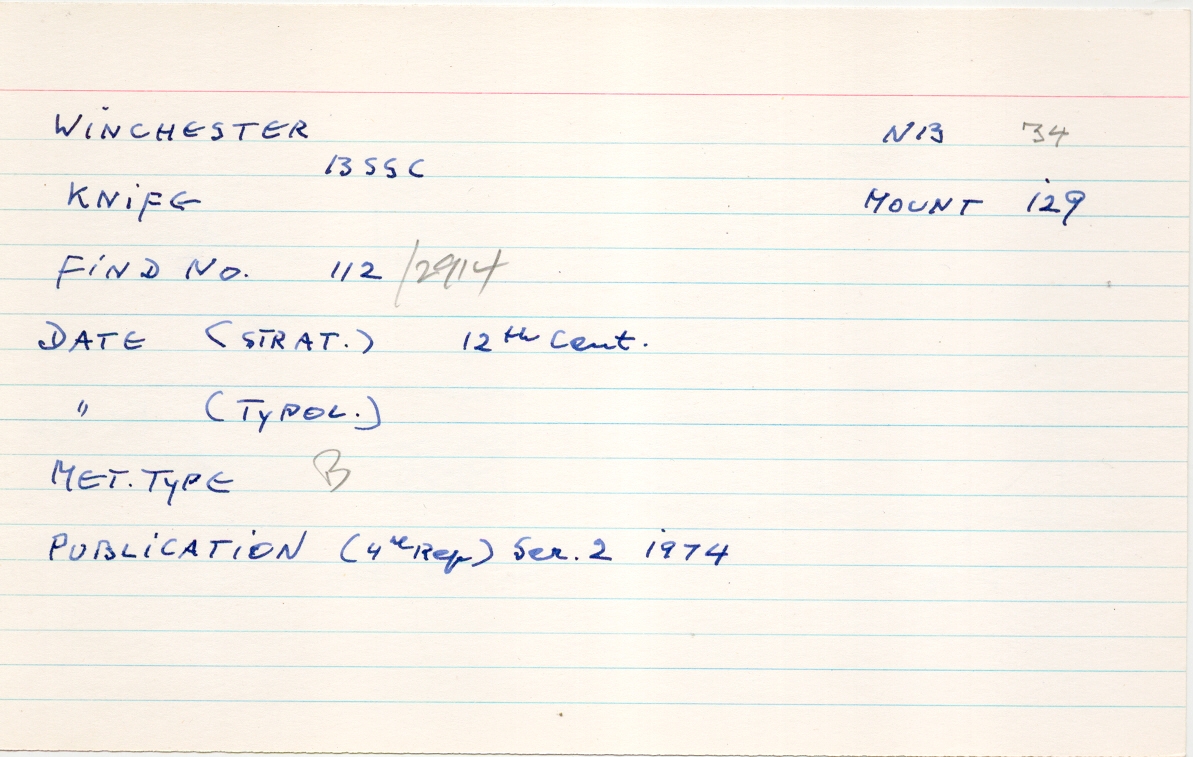 WINCHESTER N13 34
13 SSC
KNIFE MOUNT 129
FIND No. 112 /2914
DATE (STRAT.) 12th Cent.
" (TYPOL.)
MET. TYPE B
PUBLICATION (4th Rep) Ser. 2 1974